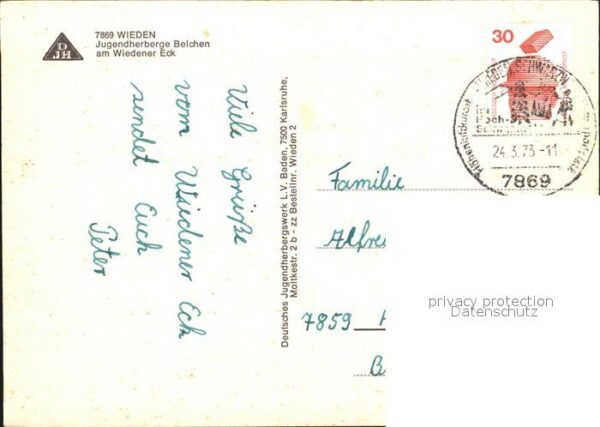 DJH
7869 WIEDEN
Jugendherberge Belchen
am Wiedener Eck
Viele Grüße
vom Wiedener Eck
sendet Euch
Peter
Deutsches Jugendherbergswerk L.V. Baden, 7500 Karlsruhe,
Moltkestr. 2 b - zz Bestellnr. Wieden 2
30
Höhenluftkurort
24.3.73-11
7869
Familie
Alfre
7859
privacy protection
Datenschutz